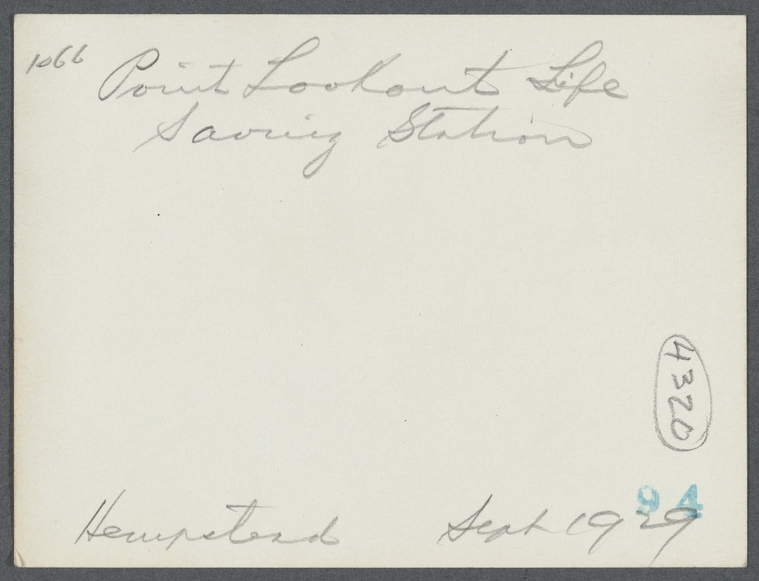 1066
Point Lookout Life
Saving Station
4320
94
Hempstead Sept 1929